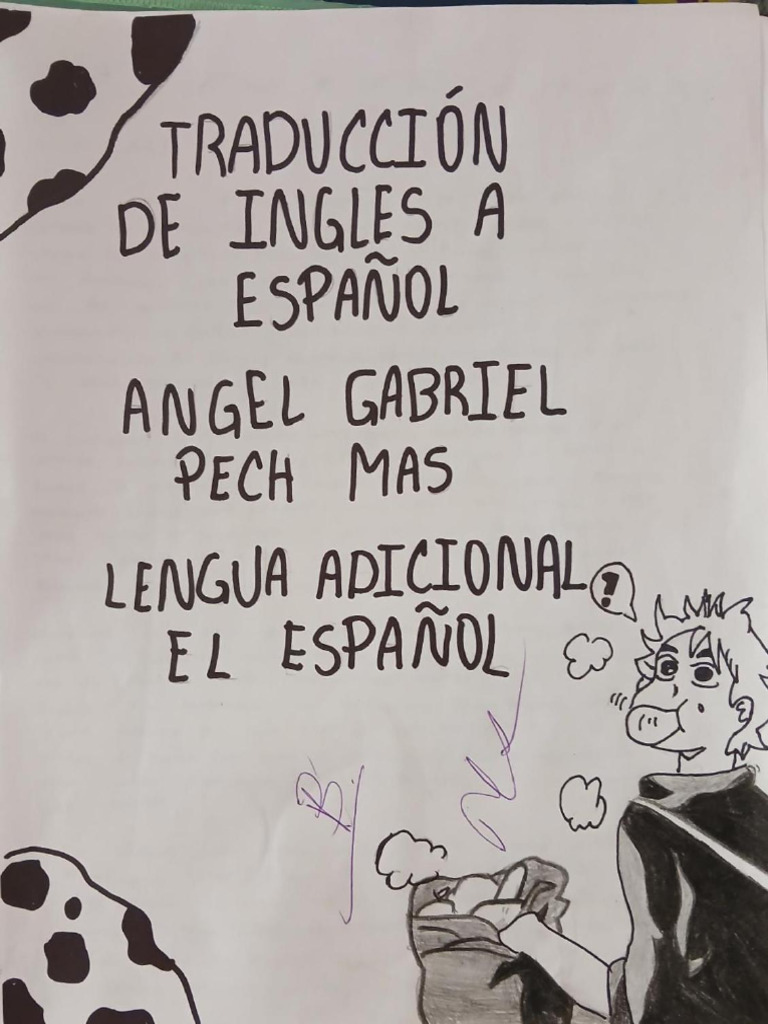 TRADUCCIÓN
DE INGLES A
ESPAÑOL
ANGEL GABRIEL
PECH MAS
LENGUA ADICIONAL
EL ESPAÑOL
!
B.